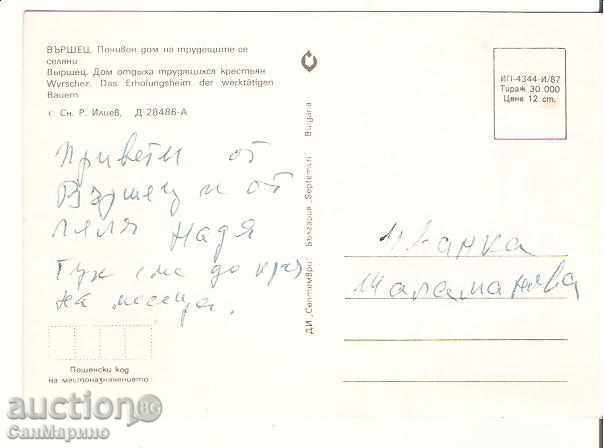 ВЪРШЕЦ. Почивен дом на трудещите се
селяни
Выршец. Дом отдыха трудящихся крестьян
Wyrschez. Das Erholungsheim der werktätigen
Bauern
г Сн. Р. Илиев, Д 28486-А
Привети от
Вършец и от
леля Надя
Тук сме до края
на месеца.
Пощенски код
на местоназначението
ДИ „Септември“ България „Septemvri“ Bulgaria
ИП-4344-И/87
Тираж 30 000
Цена 12 ст.
Иванка
auction BG
СанМарино